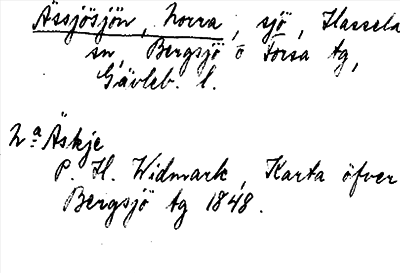 Ässjösjön, Norra, sjö, Hassela
sn, Bergsjö o Forsa tg,
Gävleb. l.
Na Äskje
P. H. Widmark, Karta öfver
Bergsjö tg 1848.